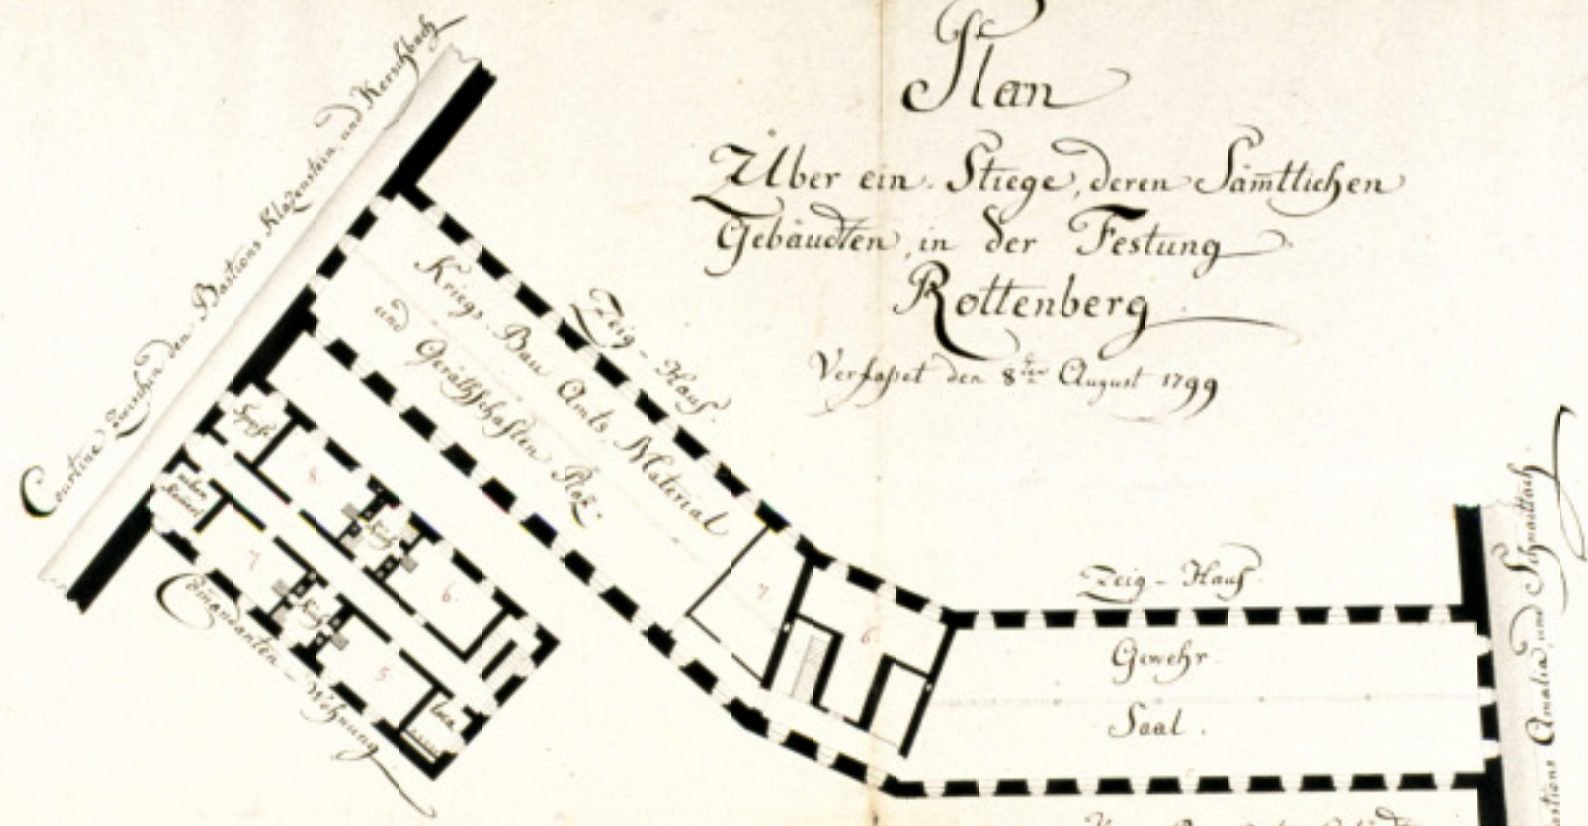 Plan
Über ein Stiege, deren Sämtlichen
Gebäudten, in der Festung
Rottenberg
Verfasset den 8ten August 1799
Courtine Zwischen den Bastions Klazenstein, und Kerschbach
Zeig-Hauß.
Kriegs-Bau Amts Material
und Geräthschaften Plaz.
Speiß
8
Kuch
6.
neben
7
Kuch
5
Comandanten-Wohnung
7
6
Zeig-Hauß.
Gewehr
Saal.
Bastions Amalia, und Schnaittach.